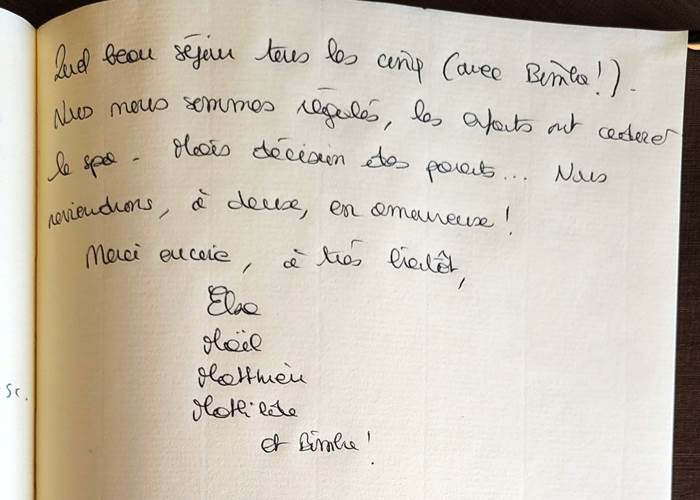 Quel beau séjour tous les cinq (avec Bimba!).
Nous nous sommes régalés, les enfants ont adoré
le spa. Mais décision des parents... Nous
reviendrons, à deux, en amoureux!
Merci encore, à très bientôt,
Elsa
Maël
Matthieu
Mathilde
et Bimba!